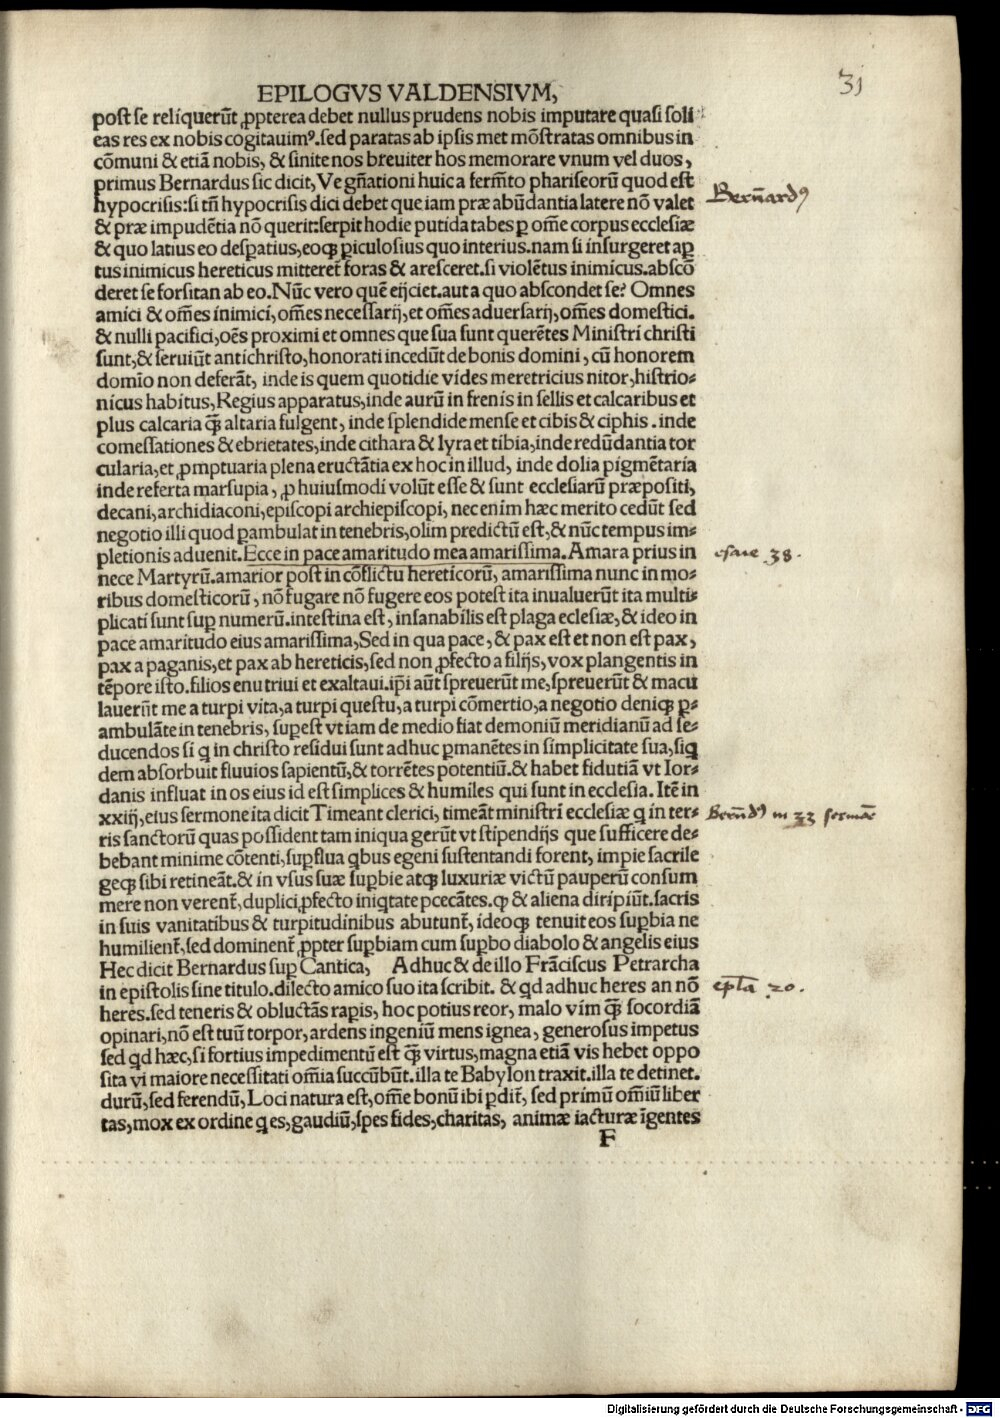 31
EPILOGVS VALDENSIVM,
post se reliquerũt ꝓpterea debet nullus prudens nobis imputare quasi soli
eas res ex nobis cogitauimꝰ. sed paratas ab ipsis met mõstratas omnibus in
cõmuni & etiã nobis, & sinite nos breuiter hos memorare vnum vel duos,
primus Bernardus sic dicit, Ve gñationi huic a fermẽto phariseorũ quod est
hypocrisis: si tñ hypocrisis dici debet que iam præ abũdantia latere nõ valet
& præ impudẽtia nõ querit: serpit hodie putida tabes ꝑ om̃e corpus ecclesiæ
& quo latius eo desꝑatius, eoqꝫ ꝑiculosius quo interius. nam si insurgeret aꝑ
tus inimicus hereticus mitteret̃ foras & aresceret. si violẽtus inimicus. abscõ
deret se forsitan ab eo. Nũc vero quẽ eijciet. aut a quo abscondet se? Omnes
amici & om̃es inimici, om̃es necessarij, et om̃es aduersarij, om̃es domestici.
& nulli pacifici, oẽs proximi et omnes que sua sunt querẽtes Ministri christi
sunt, & seruiũt antichristo, honorati incedũt de bonis domini, cũ honorem
domĩo non deferãt, inde is quem quotidie vides meretricius nitor, histrio⸗
nicus habitus, Regius apparatus, inde aurũ in frenis in sellis et calcaribus et
plus calcaria qꝫ̃ altaria fulgent, inde splendide mense et cibis & ciphis. inde
comessationes & ebrietates, inde cithara & lyra et tibia, inde redũdantia tor
cularia, et ꝓmptuaria plena eructãtia ex hoc in illud, inde dolia pigmẽtaria
inde referta marsupia, ꝓ huiusmodi volũt esse & sunt ecclesiarũ præpositi,
decani, archidiaconi, episcopi archiepiscopi, nec enim hæc merito cedũt sed
negotio illi quod ꝑambulat in tenebris, olim predictũ est, & nũc tempus im⸗
pletionis aduenit. Ecce in pace amaritudo mea amarissima. Amara prius in
nece Martyrũ. amarior post in cõflictu hereticorũ, amarissima nunc in mo⸗
ribus domesticorũ, nõ fugare nõ fugere eos potest ita inualuerũt ita multi⸗
plicati sunt suꝑ numerũ. intestina est, insanabilis est plaga eclesiæ, & ideo in
pace amaritudo eius amarissima, Sed in qua pace, & pax est et non est pax,
pax a paganis, et pax ab hereticis, sed non ꝓfecto a filijs, vox plangentis in
tẽpore isto. filios enutriui et exaltaui. ip̃i aũt spreuerũt me, spreuerũt & macu
lauerũt me a turpi vita, a turpi questu, a turpi cõmertio, a negotio deniqꝫ ꝑ⸗
ambulãte in tenebris, suꝑest vt iam de medio fiat demoniũ meridianũ ad se⸗
ducendos si q̃ in christo residui sunt adhuc ꝑmanẽtes in simplicitate sua, siq̃
dem absorbuit fluuios sapientũ, & torrẽtes potentiũ. & habet fidutiã vt Ior⸗
danis influat in os eius id est simplices & humiles qui sunt in ecclesia. Itẽ in
xxiij, eius sermone ita dicit Timeant clerici, timeãt ministri ecclesiæ q̃ in ter⸗
ris sanctorũ quas possident tam iniqua gerũt vt stipendijs que sufficere de⸗
bebant minime cõtenti, suꝑflua q̃bus egeni sustentandi forent, impie sacrile
geqꝫ sibi retineãt. & in vsus suæ suꝑbie atqꝫ luxuriæ victũ pauperũ consum
mere non verent̃, duplici ꝓfecto iniq̃tate pcecãtes. ꝙ & aliena diripiũt. sacris
in suis vanitatibus & turpitudinibus abutunt̃, ideoqꝫ tenuit eos suꝑbia ne
humilient̃, sed dominent̃ ꝓpter suꝑbiam cum suꝑbo diabolo & angelis eius
Hec dicit Bernardus suꝑ Cantica, Adhuc & de illo Frãciscus Petrarcha
in epistolis sine titulo. dilecto amico suo ita scribit. & q̃d adhuc heres an nõ
heres. sed teneris & obluctãs raꝑis, hoc potius reor, malo vim qꝫ̃ socordiã
opinari, nõ est tuũ torpor, ardens ingeniũ mens ignea, generosus impetus
sed q̃d hæc, si fortius impedimentũ est qꝫ̃ virtus, magna etiã vis hebet oppo
sita vi maiore necessitati om̃ia succũbũt. illa te Babylon traxit. illa te detinet.
durũ, sed ferendũ, Loci natura est, om̃e bonũ ibi ꝑdit̃, sed primũ om̃iũ liber
tas, mox ex ordine q̃es, gaudiũ, spes fides, charitas, animæ iacturæ ĩgentes
F
Berñardꝰ
esaie 38.
Berñdꝰ in 33 sermõe
epl̃a 20.
Digitalisierung gefördert durch die Deutsche Forschungsgemeinschaft - DFG